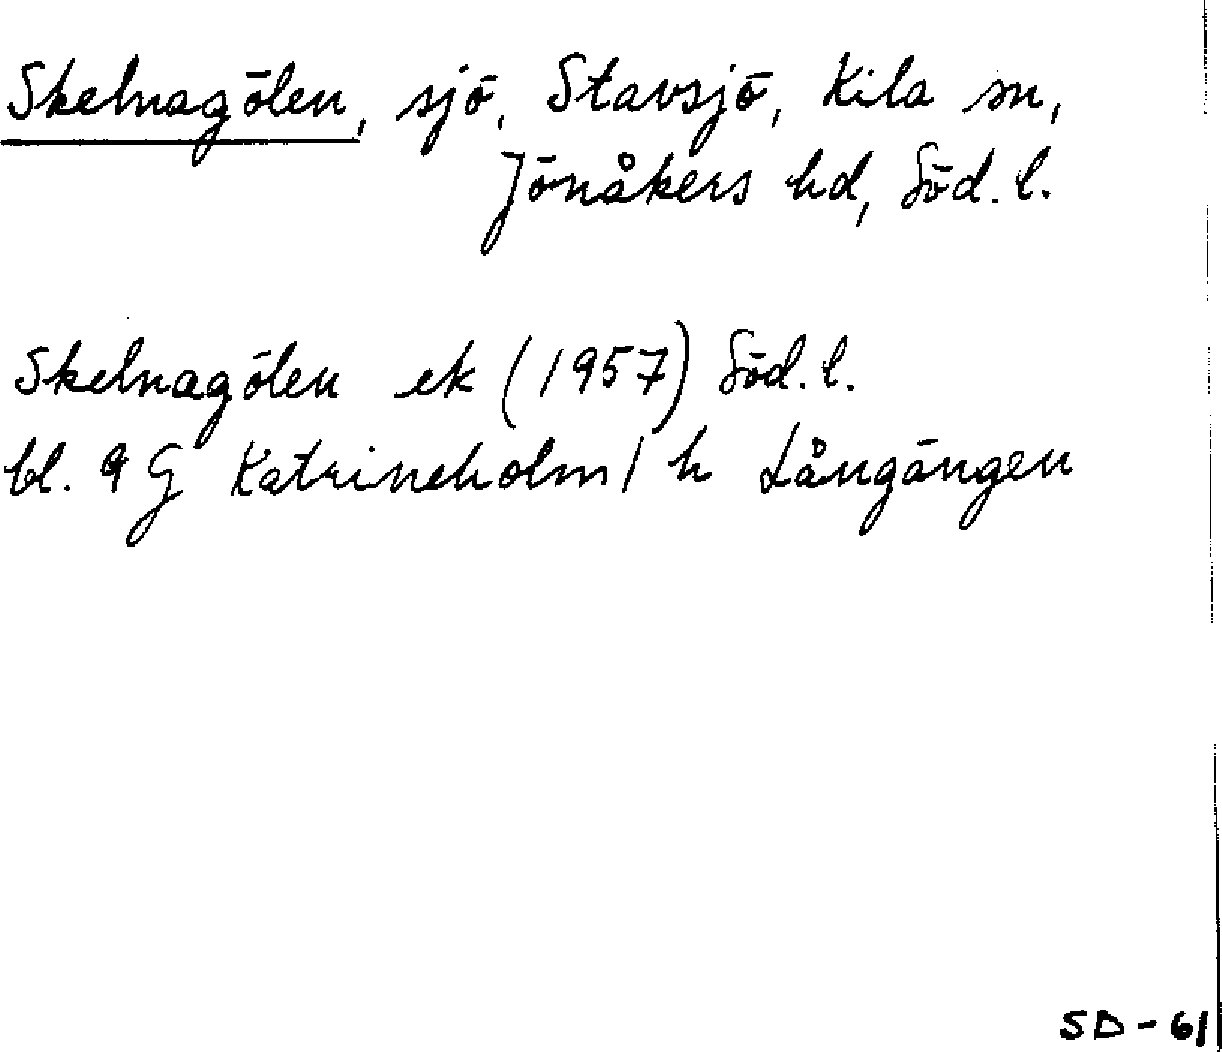 Skelnagölen, sjö, Stavsjö, Kila sn,
Jönåkers hd, Söd. l.
Skelnagölen ek (1957) Söd. l.
bl. 9 G Katrineholm / h Långängen
SD-61